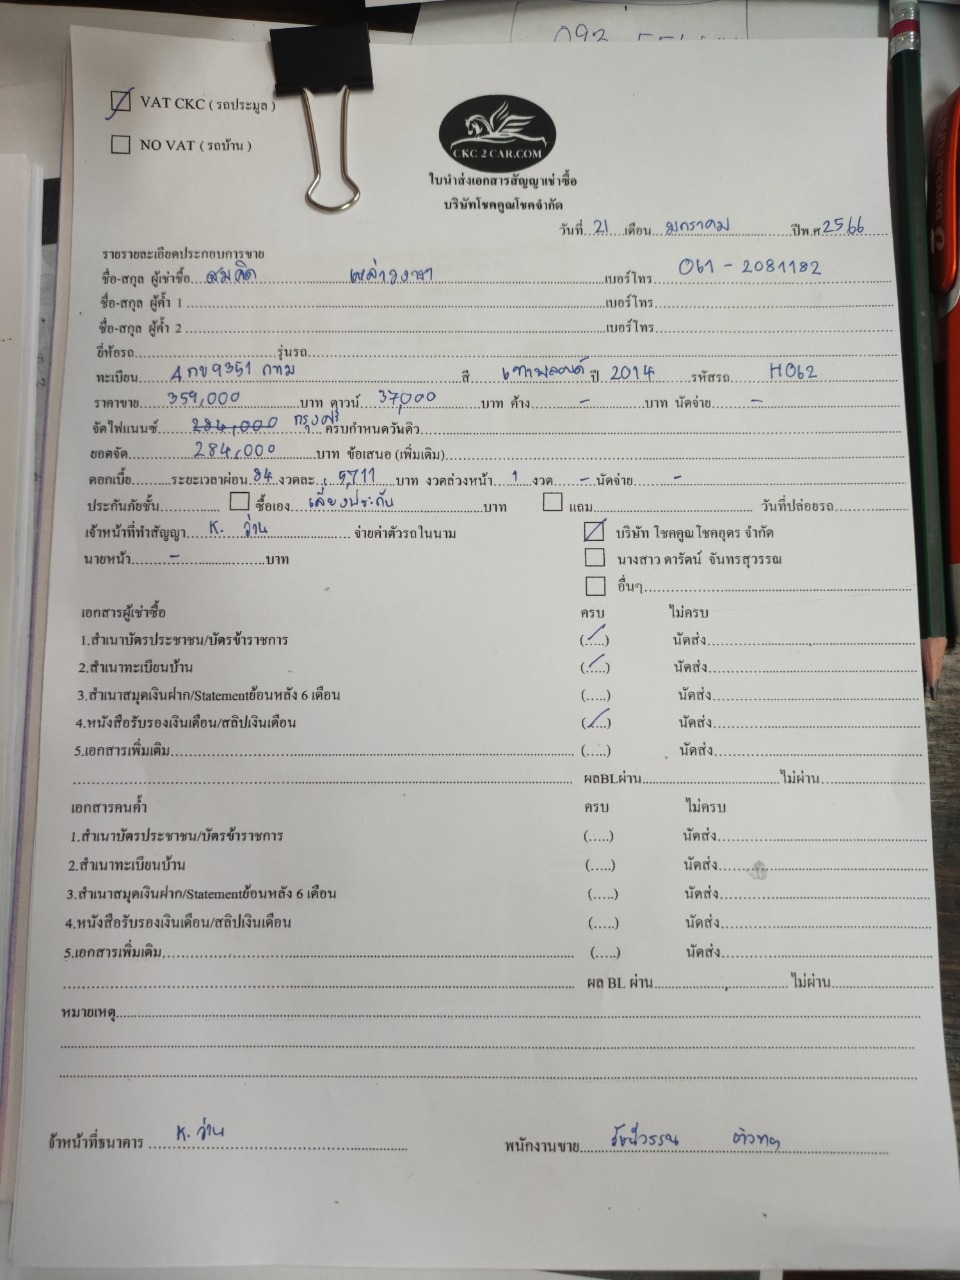 VAT CKC ( รถประมูล )
NO VAT ( รถบ้าน )
CKC 2 CAR.COM
ใบนำส่งเอกสารสัญญาเช่าซื้อ
บริษัทโชคคูณโชคจำกัด
วันที่ 21 เดือน มกราคม ปีพ.ศ 2566
รายรายละเอียดประกอบการขาย
ชื่อ-สกุล ผู้เช่าซื้อ สมคิด เบอร์โทร 061 - 2081182
ชื่อ-สกุล ผู้ค้ำ 1 เบอร์โทร
ชื่อ-สกุล ผู้ค้ำ 2 เบอร์โทร
ยี่ห้อรถ รุ่นรถ
ทะเบียน 4กข9351 กทม สี ปี 2014 รหัสรถ H062
ราคาขาย 359,000 บาท ดาวน์ 37,000 บาท ค้าง - บาท นัดจ่าย -
จัดไฟแนนซ์ 284,000 กรุงศรี ครบกำหนดวันดิว
ยอดจัด 284,000 บาท ข้อเสนอ (เพิ่มเติม)
ดอกเบี้ย ระยะเวลาผ่อน 84 งวดละ 5,711 บาท งวดล่วงหน้า 1 งวด - นัดจ่าย -
ประกันภัยชั้น ซื้อเอง เลี่ยงประกัน บาท แถม วันที่ปล่อยรถ
เจ้าหน้าที่ทำสัญญา K. ว่าน จ่ายค่าตัวรถในนาม บริษัท โชคคูณโชคอุดร จำกัด
นายหน้า - บาท นางสาว ดารัตน์ จันทรสุวรรณ
อื่นๆ
เอกสารผู้เช่าซื้อ ครบ ไม่ครบ
1.สำเนาบัตรประชาชน/บัตรข้าราชการ (.....) นัดส่ง
2.สำเนาทะเบียนบ้าน (.....) นัดส่ง
3.สำเนาสมุดเงินฝาก/Statementย้อนหลัง 6 เดือน (.....) นัดส่ง
4.หนังสือรับรองเงินเดือน/สลิปเงินเดือน (.....) นัดส่ง
5.เอกสารเพิ่มเติม (.....) นัดส่ง
ผลBLผ่าน ไม่ผ่าน
เอกสารคนค้ำ ครบ ไม่ครบ
1.สำเนาบัตรประชาชน/บัตรข้าราชการ (.....) นัดส่ง
2.สำเนาทะเบียนบ้าน (.....) นัดส่ง
3.สำเนาสมุดเงินฝาก/Statementย้อนหลัง 6 เดือน (.....) นัดส่ง
4.หนังสือรับรองเงินเดือน/สลิปเงินเดือน (.....) นัดส่ง
5.เอกสารเพิ่มเติม (.....) นัดส่ง
ผล BL ผ่าน ไม่ผ่าน
หมายเหตุ
จ้าหน้าที่ธนาคาร K. ว่าน พนักงานขาย